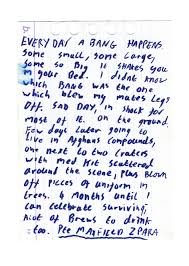 EVERY DAY A BANG HAPPENS
some small, some large,
some so big it shakes you
in your bed. I didnt know
which BANG was the one
which blew my mates legs
off. SAD DAY, in shock for
most of it. on the ground
few days later going to
live in Afghan compounds,
one next to two craters
with med kit scattered
around the scene, plus blown
off pieces of uniform in
trees. 4 months until I
can celebrate surviving,
alot of Brews to drink
too. Pte MAXFIELD 2PARA